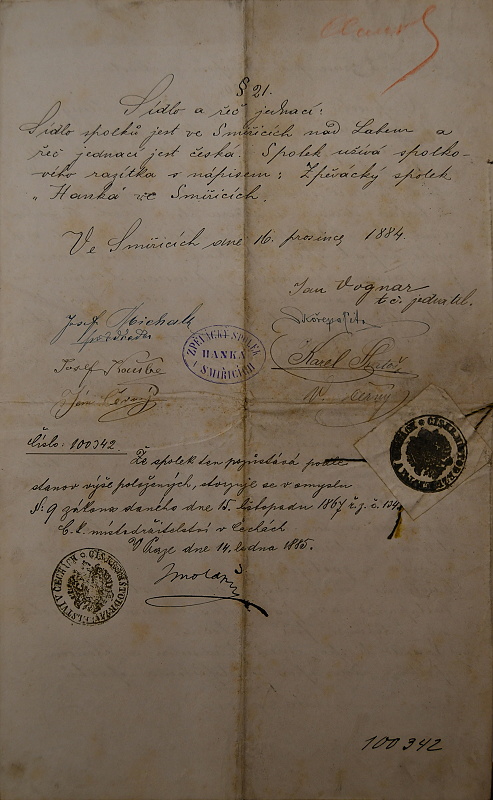 § 21.
Sídlo a řeč jednací:
Sídlo spolku jest ve Smiřicích nad Labem a
řeč jednací jest česká. Spolek užívá spolko-
vého razítka s nápisem: Zpěvácký spolek
„Hanka“ ve Smiřicích.
Ve Smiřicích dne 16. prosince 1884.
Jan Vognar
t.č. jednatel.
Josef Michalk
Karel
Josef Koutba
Jan Černý
V. Černý
ZPĚVÁCKÝ SPOLEK
HANKA
V SMIŘICÍCH
Číslo: 100342.
Že spolek ten pozůstává podle
stanov výše položených, stvrzuje se v smyslu
§. 9 zákona daného dne 15. listopadu 1867 ř. z. č. 134.
C. k. místodržitelství v Čechách
V Praze dne 14. ledna 1885.
100342